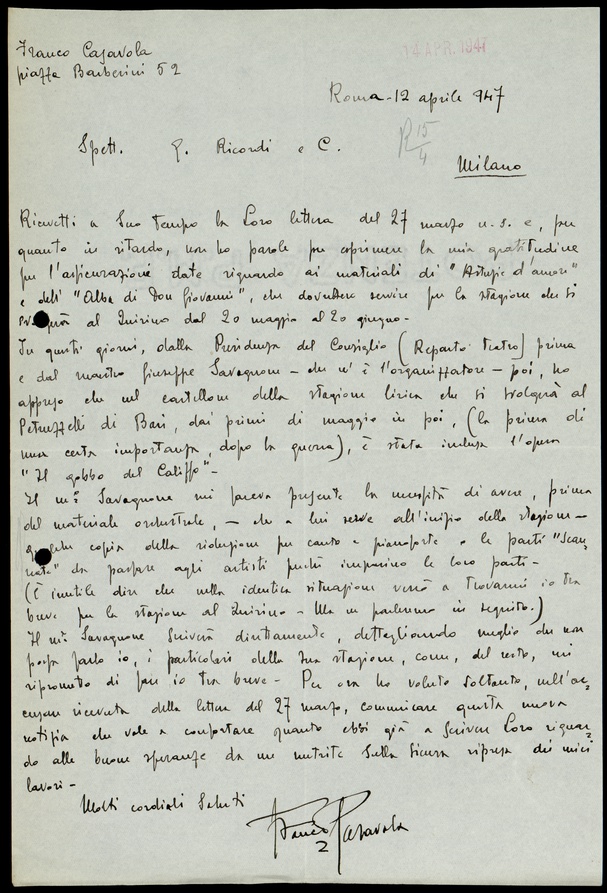 Franco Casavola
piazza Barberini 52
14 APR. 1947
Roma - 12 aprile 947
Spett. G. Ricordi e C.
R 15/4
Milano
Ricevetti a suo tempo la Loro lettera del 27 marzo u.s. e, per
quanto in ritardo, non ho parole per esprimere la mia gratitudine
per l'assicurazione date riguardo ai materiali di "Astuzie d'amore"
e dell' "Alba di Don Giovanni", che dovrebbero servire per la stagione che si
svolgerà al Quirino dal 20 maggio al 20 giugno -
In questi giorni, dalla Presidenza del Consiglio (Reparto Teatro) prima
e dal maestro Giuseppe Savagnone - che n'è l'organizzatore - poi, ho
appreso che nel cartellone della stagione lirica che si svolgerà al
Petruzzelli di Bari, dai primi di maggio in poi, (la prima di
una certa importanza, dopo la guerra), è stata inclusa l'opera
"Il gobbo del Califfo" -
Il m.° Savagnone mi faceva presente la necessità di avere, prima
del materiale orchestrale, - che a lui serve all'inizio della stagione -
qualche copia della riduzione per canto e pianoforte e le parti "scan-
nate" da passare agli artisti perché imparino le loro parti -
(È inutile dire che nella identica situazione verrò a trovarmi io tra
breve per la stagione al Quirino - Ma ne parleremo in seguito.)
Il m.° Savagnone scriverà direttamente, dettagliando meglio che non
possa farlo io, i particolari della sua stagione, come, del resto, mi
riprometto di fare io tra breve - Per ora ho voluto soltanto, nell'ac-
cusare ricevuta della lettera del 27 marzo, comunicare questa nuova
notizia che vale a confortare quanto ebbi già a scrivere Loro riguar-
do alle buone speranze da me nutrite sulla sicura ripresa dei miei
lavori -
Molti cordiali saluti
Franco Casavola